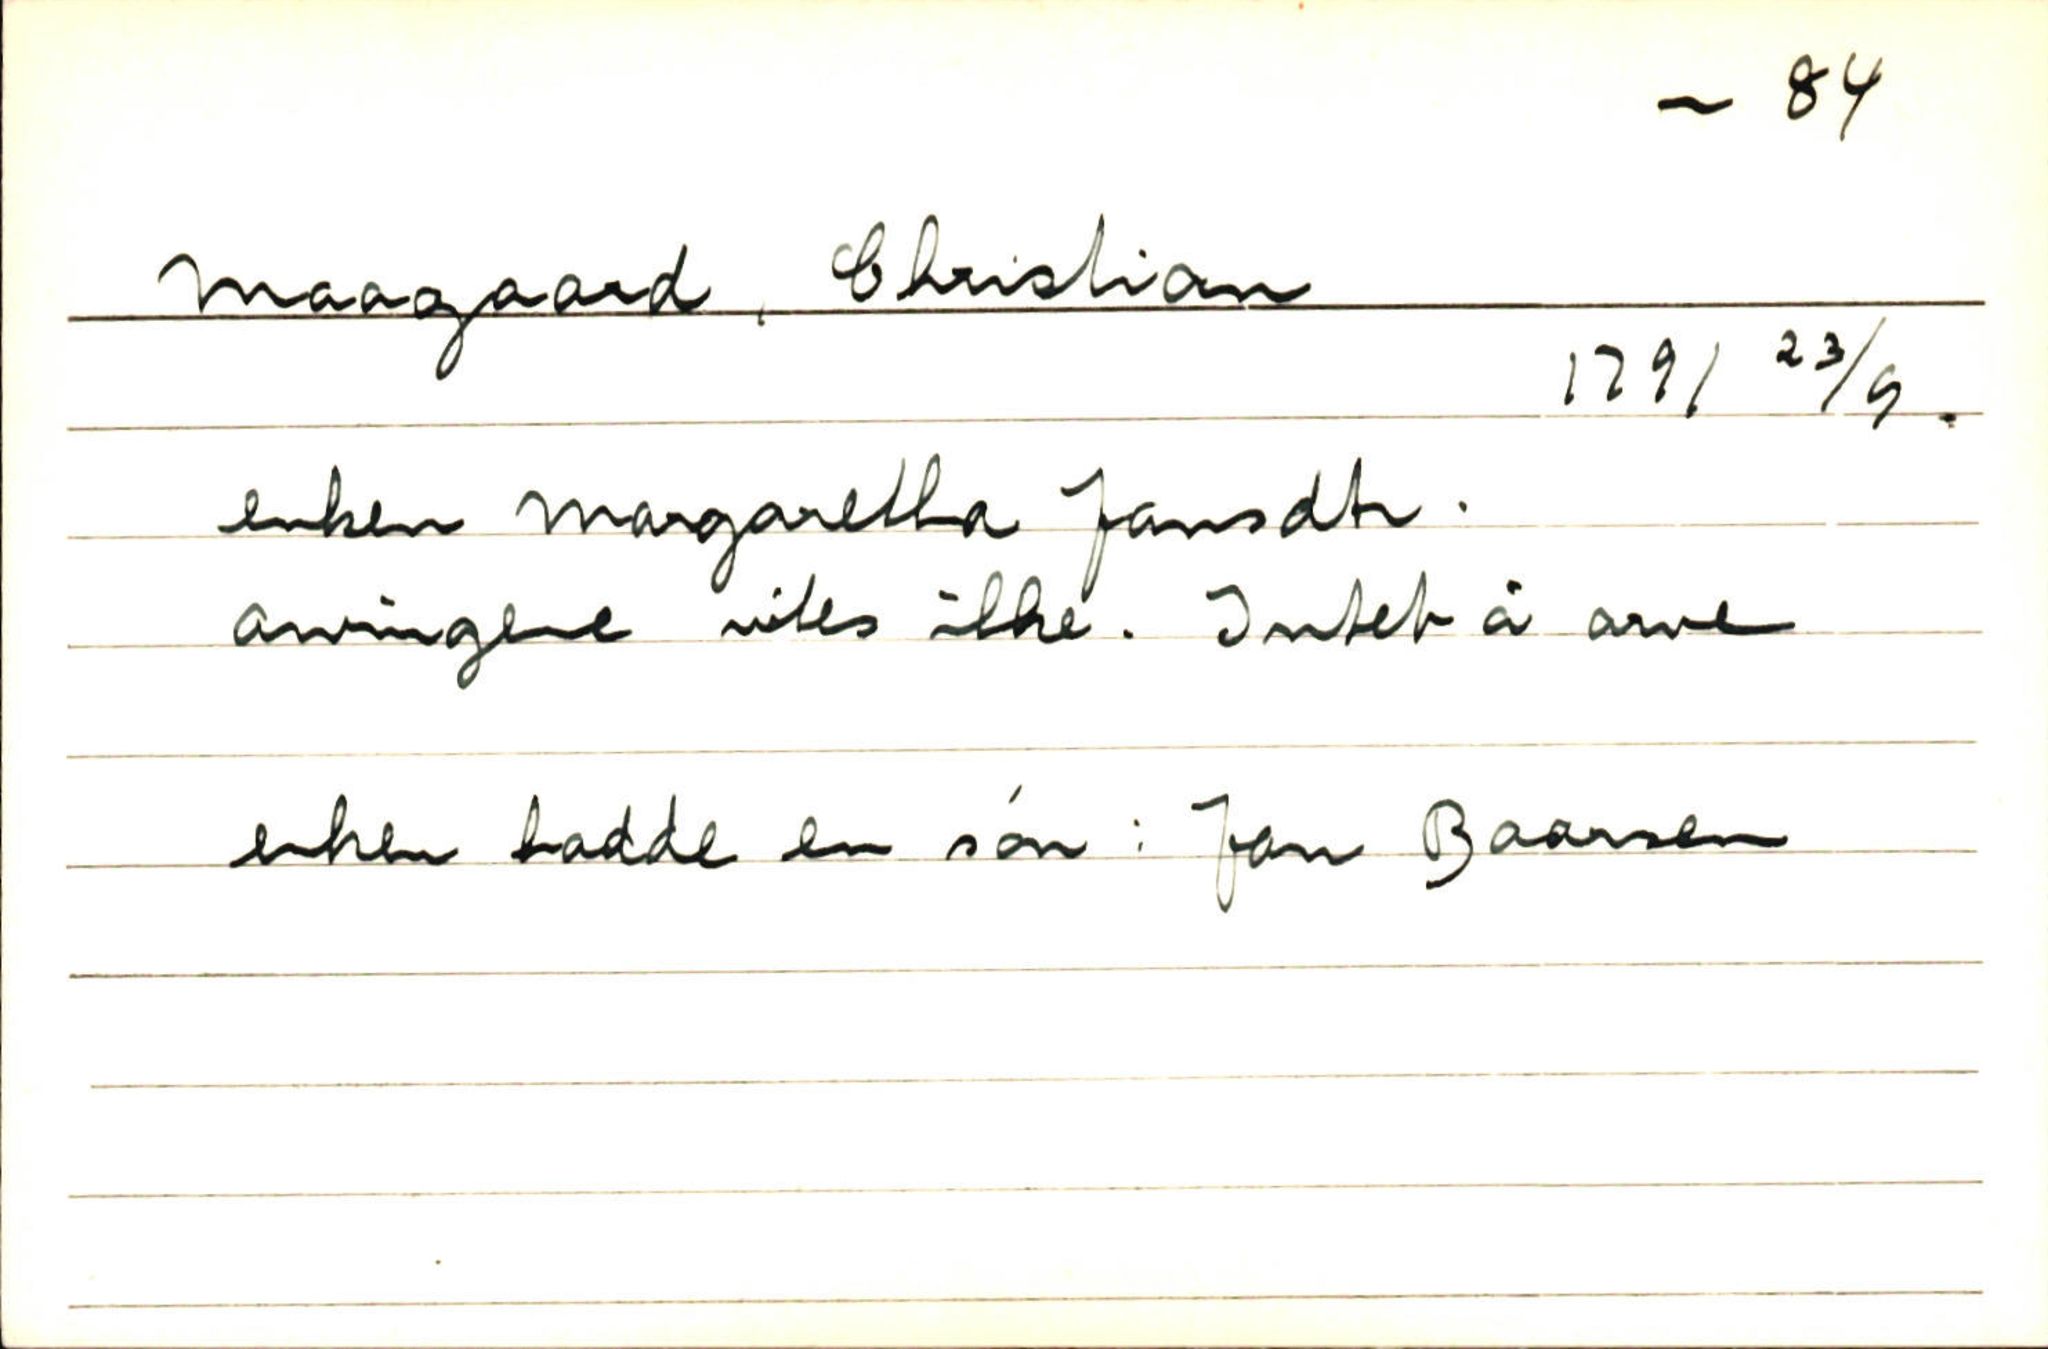 ~ 84
Maagaard, Christian
1791 23/9.
enken Margaretha Jansdtr.
arvingene vites ikke. Intet å arve
enken hadde en søn: Jan Baarsen